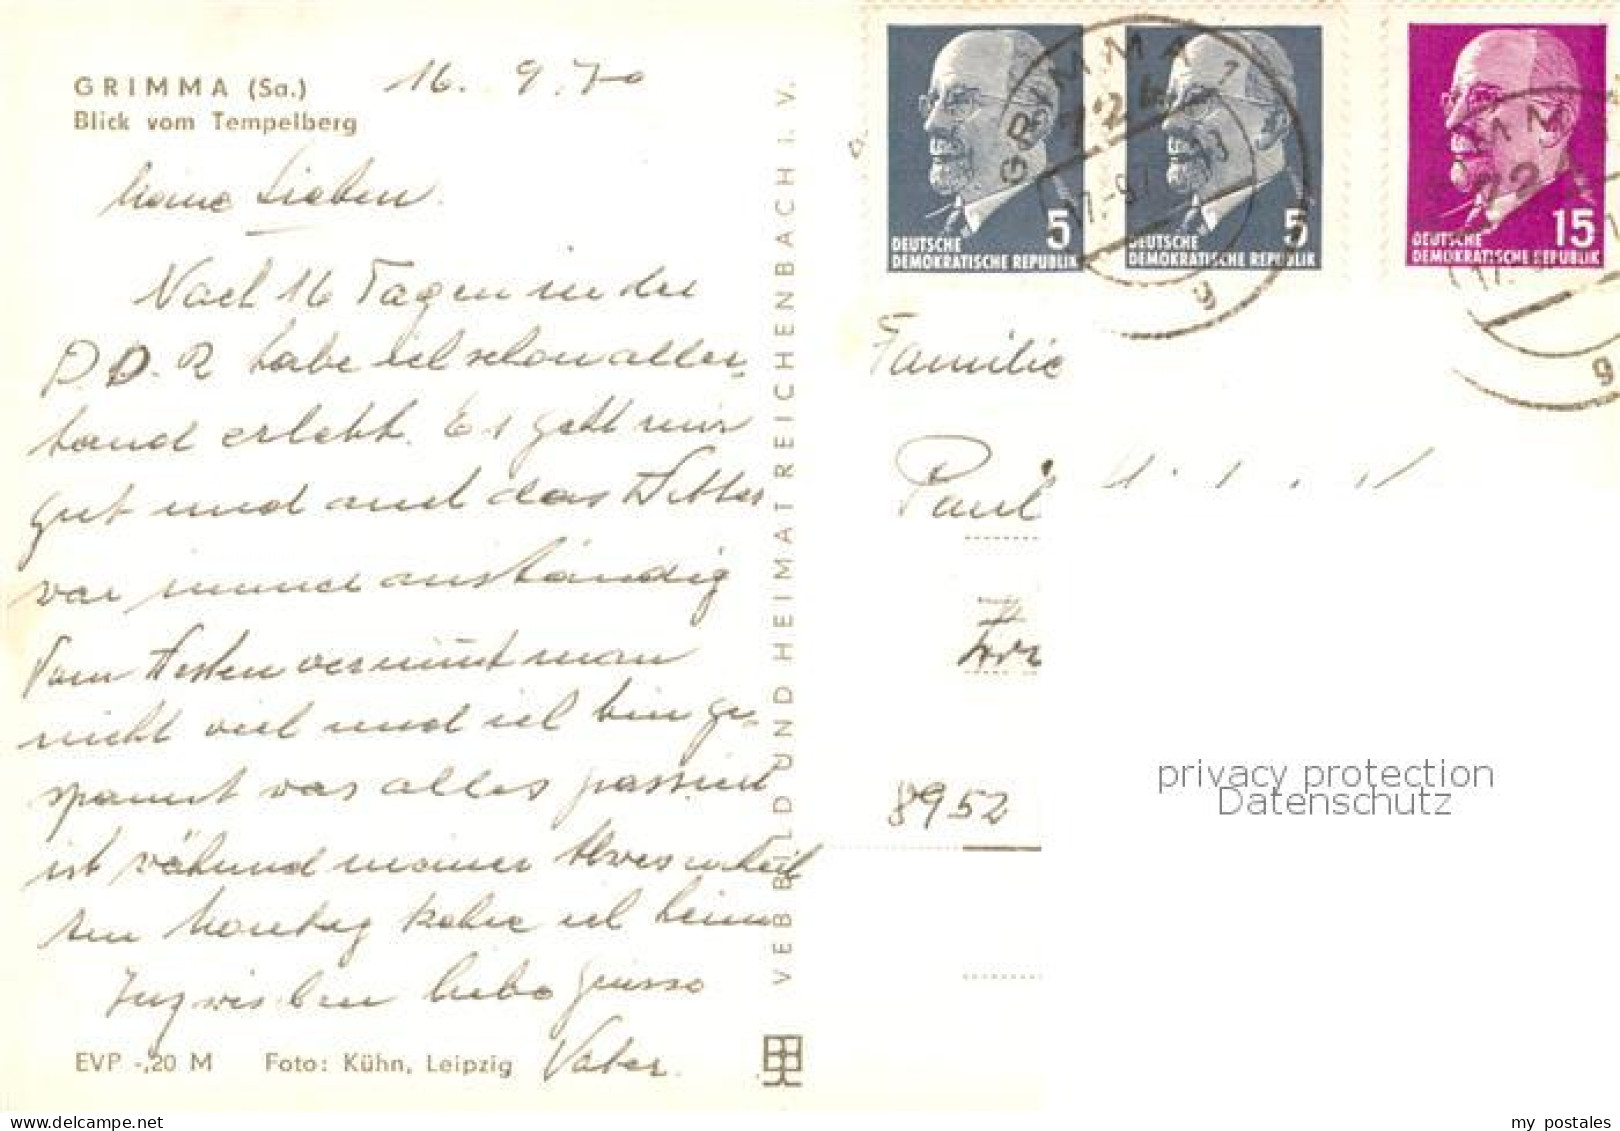 GRIMMA (Sa.)
Blick vom Tempelberg
16. 9. 70
Meine Lieben.
Nach 16 Tagen in der
D.D.R habe ich schon aller-
hand erlebt. Es geht mir
gut und auch das Wetter
war immer anständig
Vom Westen vernimmt man
nicht viel und ich bin ge-
spannt was alles passiert
ist während meiner Abwesenheit
Am Montag kehre ich heim
Inzwischen liebe Grüsse
Vater.
EVP -,20 M Foto: Kühn, Leipzig
VEB BILD UND HEIMAT REICHENBACH I. V.
5
DEUTSCHE
DEMOKRATISCHE REPUBLIK
5
DEUTSCHE
DEMOKRATISCHE REPUBLIK
15
DEUTSCHE
DEMOKRATISCHE REPUBLIK
GRIMMA 1
724
g
g
Familie
Paul
8952
privacy protection
Datenschutz
my postales